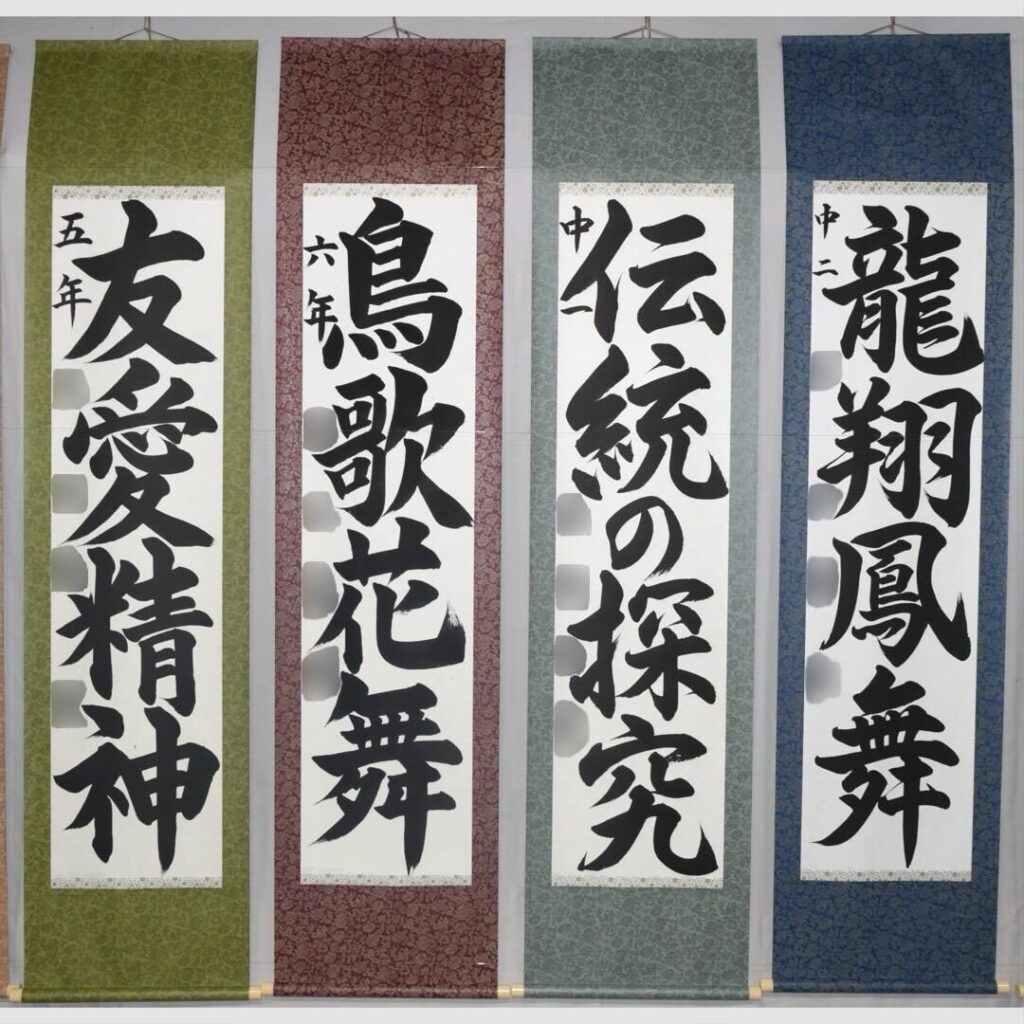 友愛精神
五年
鳥歌花舞
六年
伝統の探究
中一
龍翔鳳舞
中二